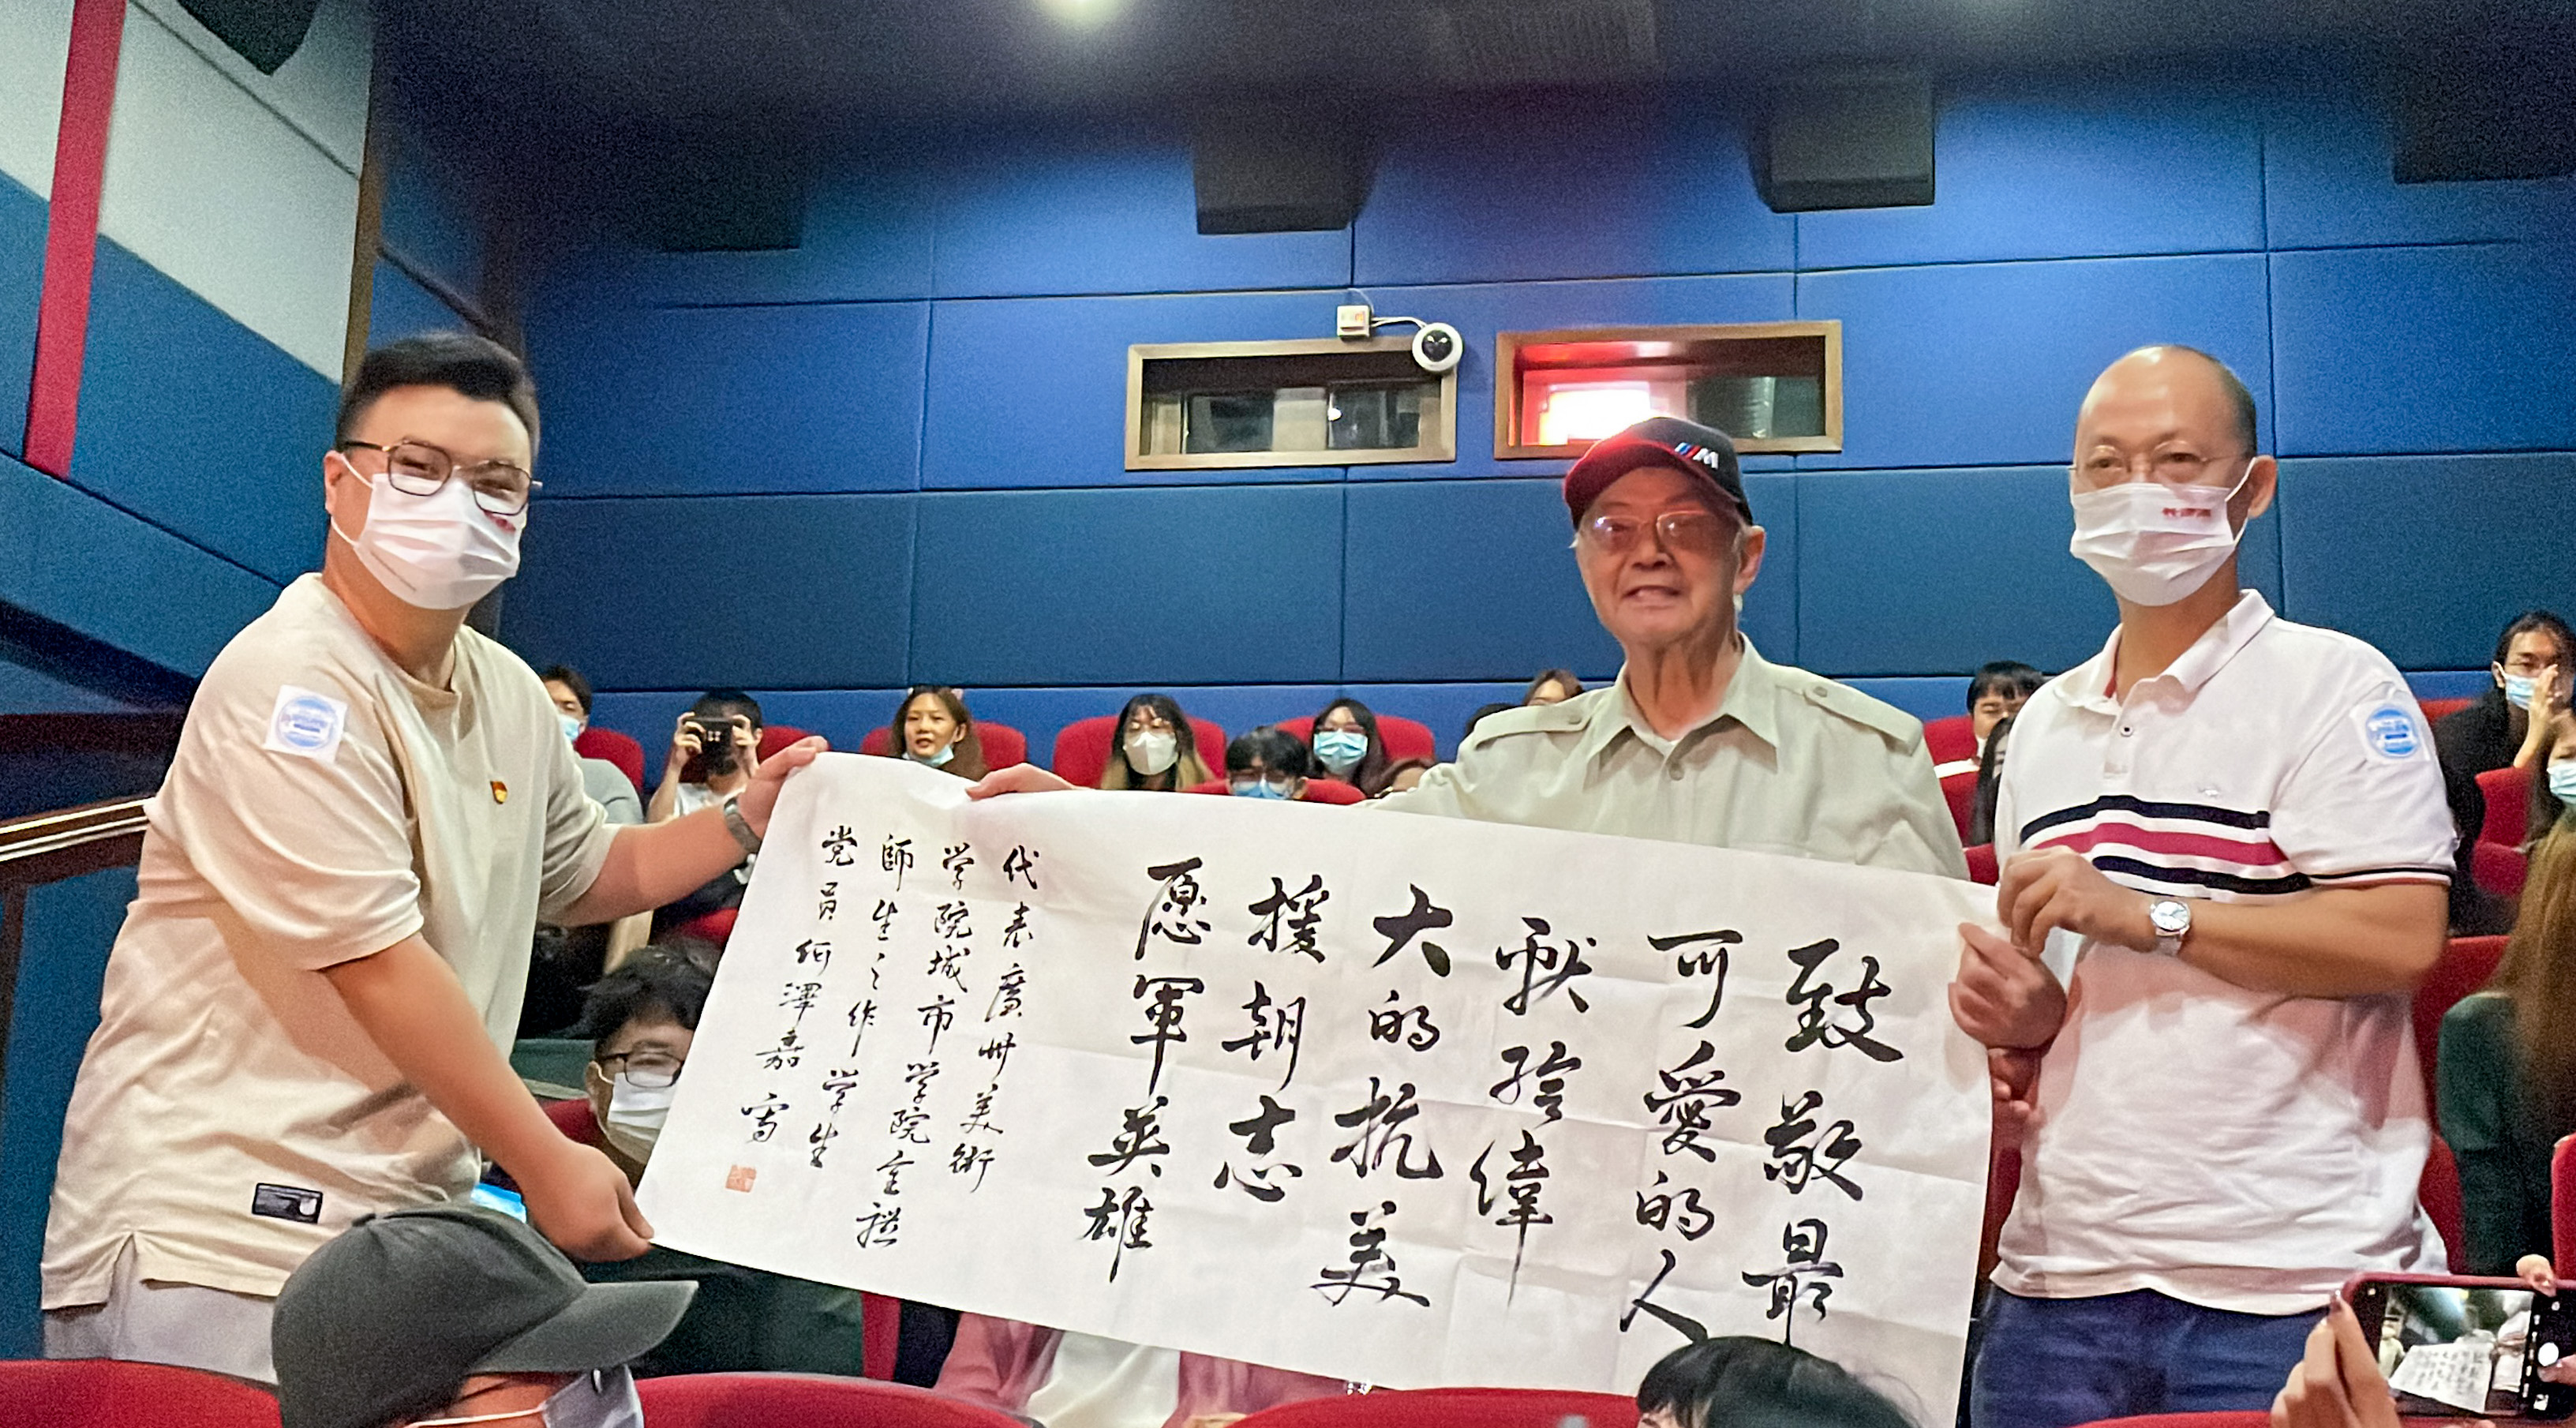 致敬最
可愛的人
献给偉
大的抗美
援朝志
愿軍英雄
代表廣州美術
学院城市学院全體
師生之作学生
党員何澤嘉書
M